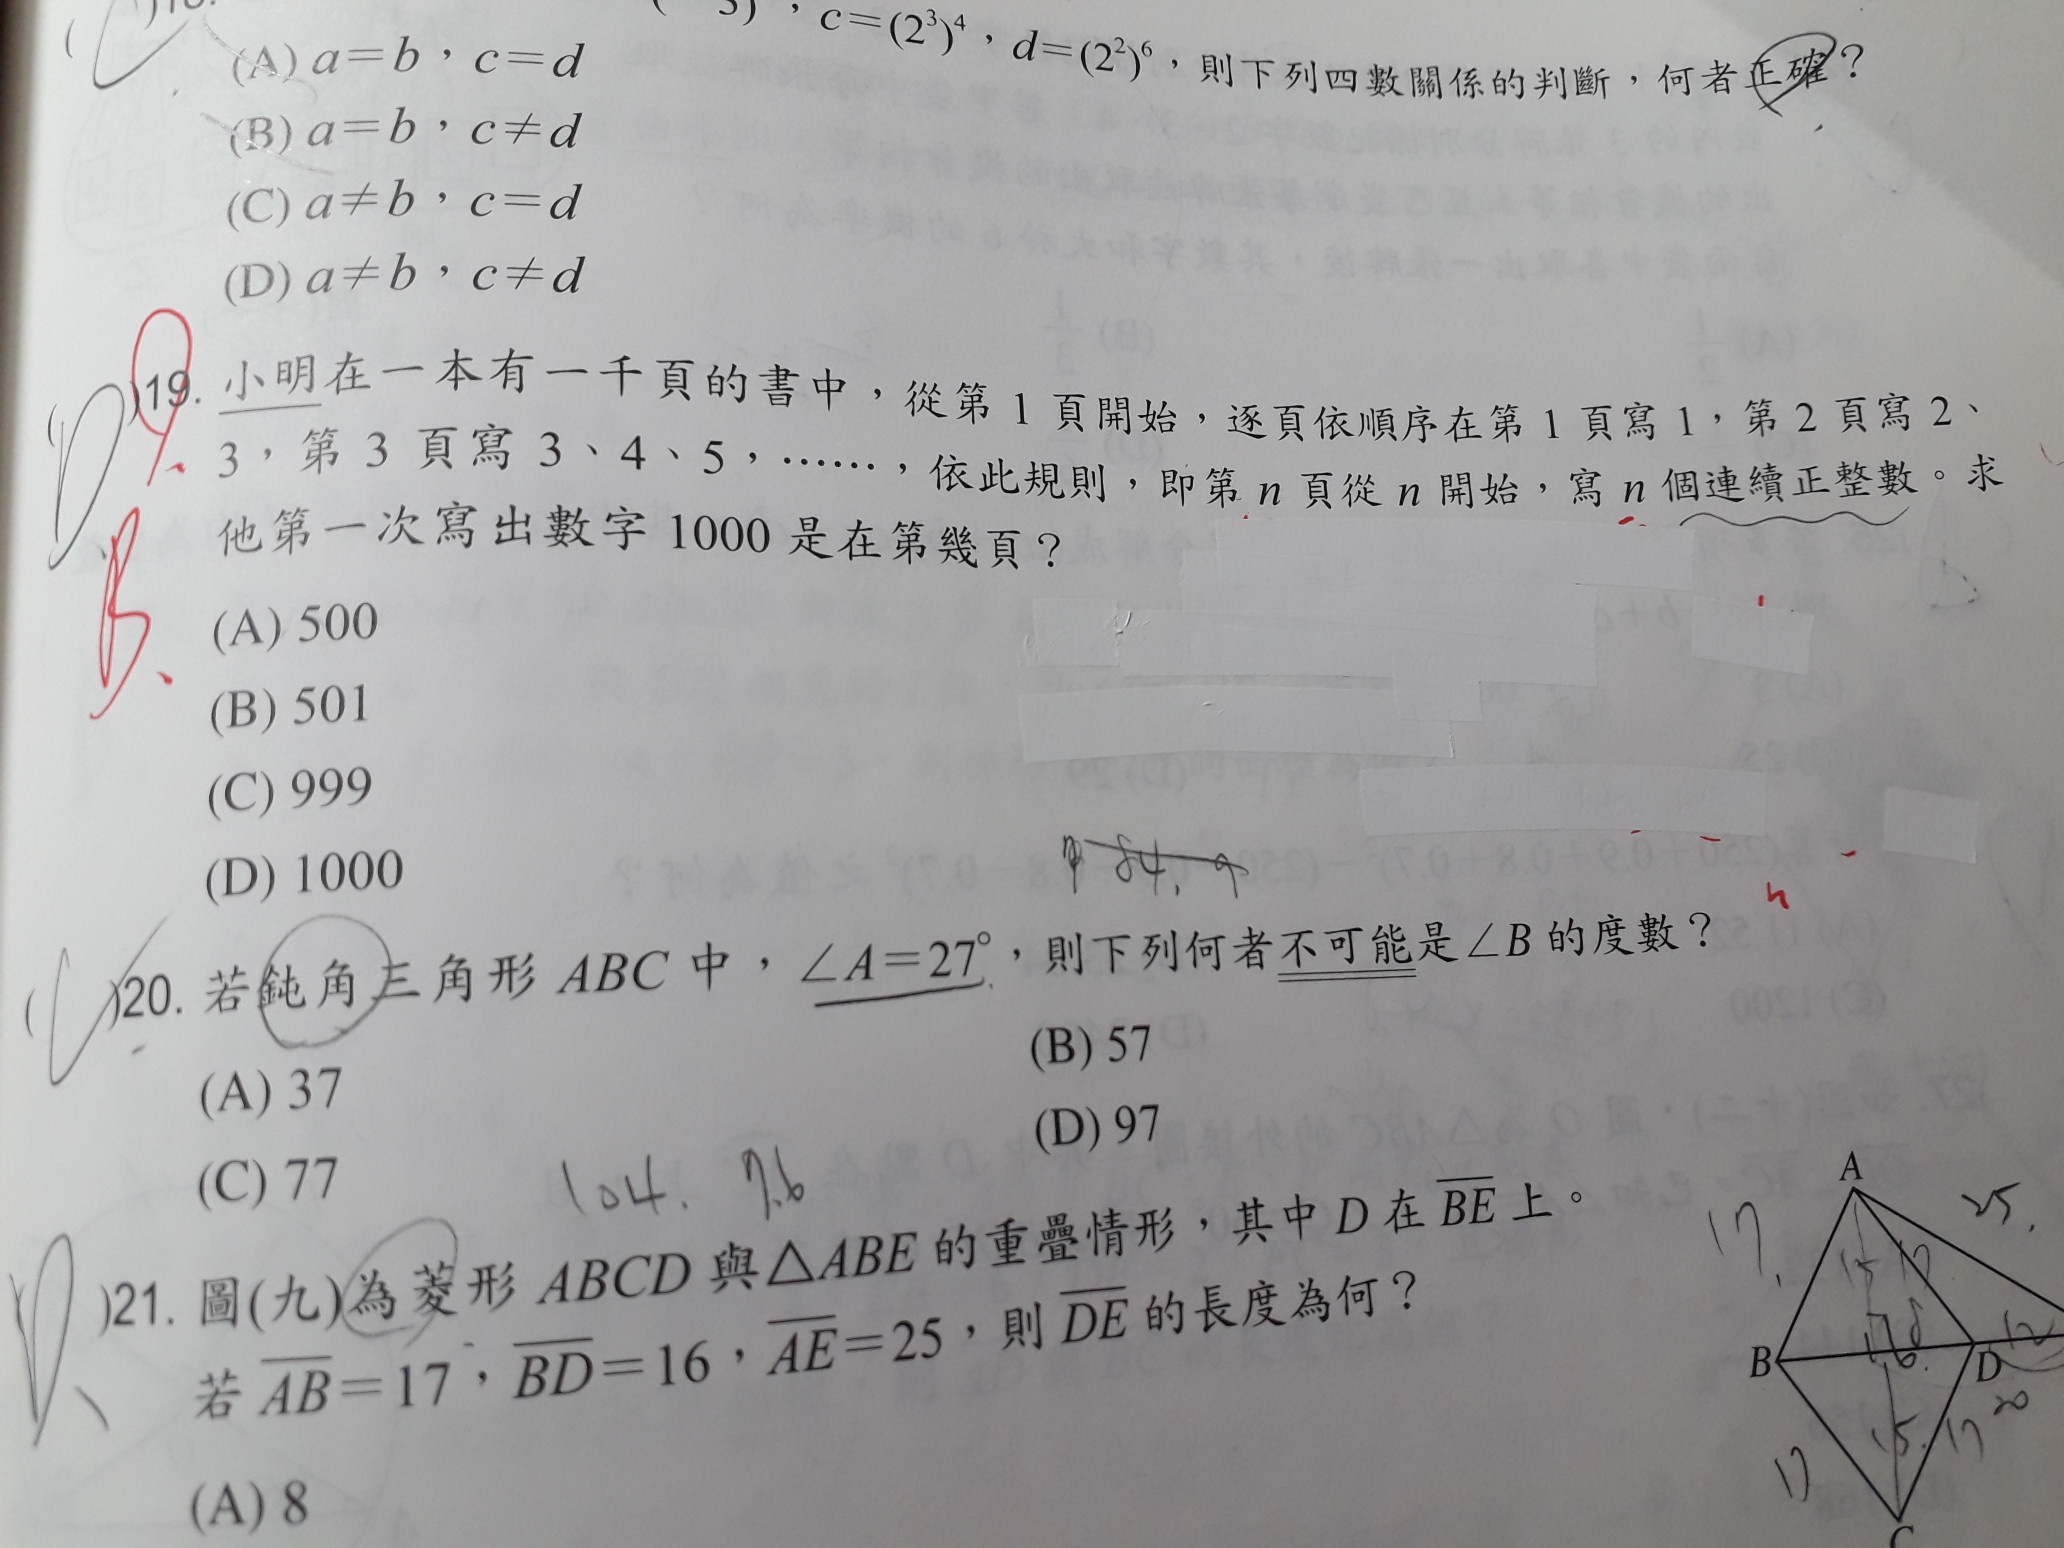 c=(2³)⁴，d=(2²)⁶，則下列四數關係的判斷，何者正確？
(A) a=b，c=d
(B) a=b，c≠d
(C) a≠b，c=d
(D) a≠b，c≠d
D )19. 小明在一本有一千頁的書中，從第 1 頁開始，逐頁依順序在第 1 頁寫 1，第 2 頁寫 2、
3，第 3 頁寫 3、4、5，⋯⋯，依此規則，即第 n 頁從 n 開始，寫 n 個連續正整數。求
他第一次寫出數字 1000 是在第幾頁？
B
(A) 500
(B) 501
(C) 999
(D) 1000
n
( C )20. 若鈍角三角形 ABC 中，∠A=27°，則下列何者不可能是∠B 的度數？
(A) 37
(B) 57
(C) 77
(D) 97
104. 76
D )21. 圖(九)為菱形 ABCD 與△ABE 的重疊情形，其中 D 在 BE 上。
若 AB=17，BD=16，AE=25，則 DE 的長度為何？
(A) 8
A
25.
17.
15 17
B
16.
D
12
20
17
15. 17
C